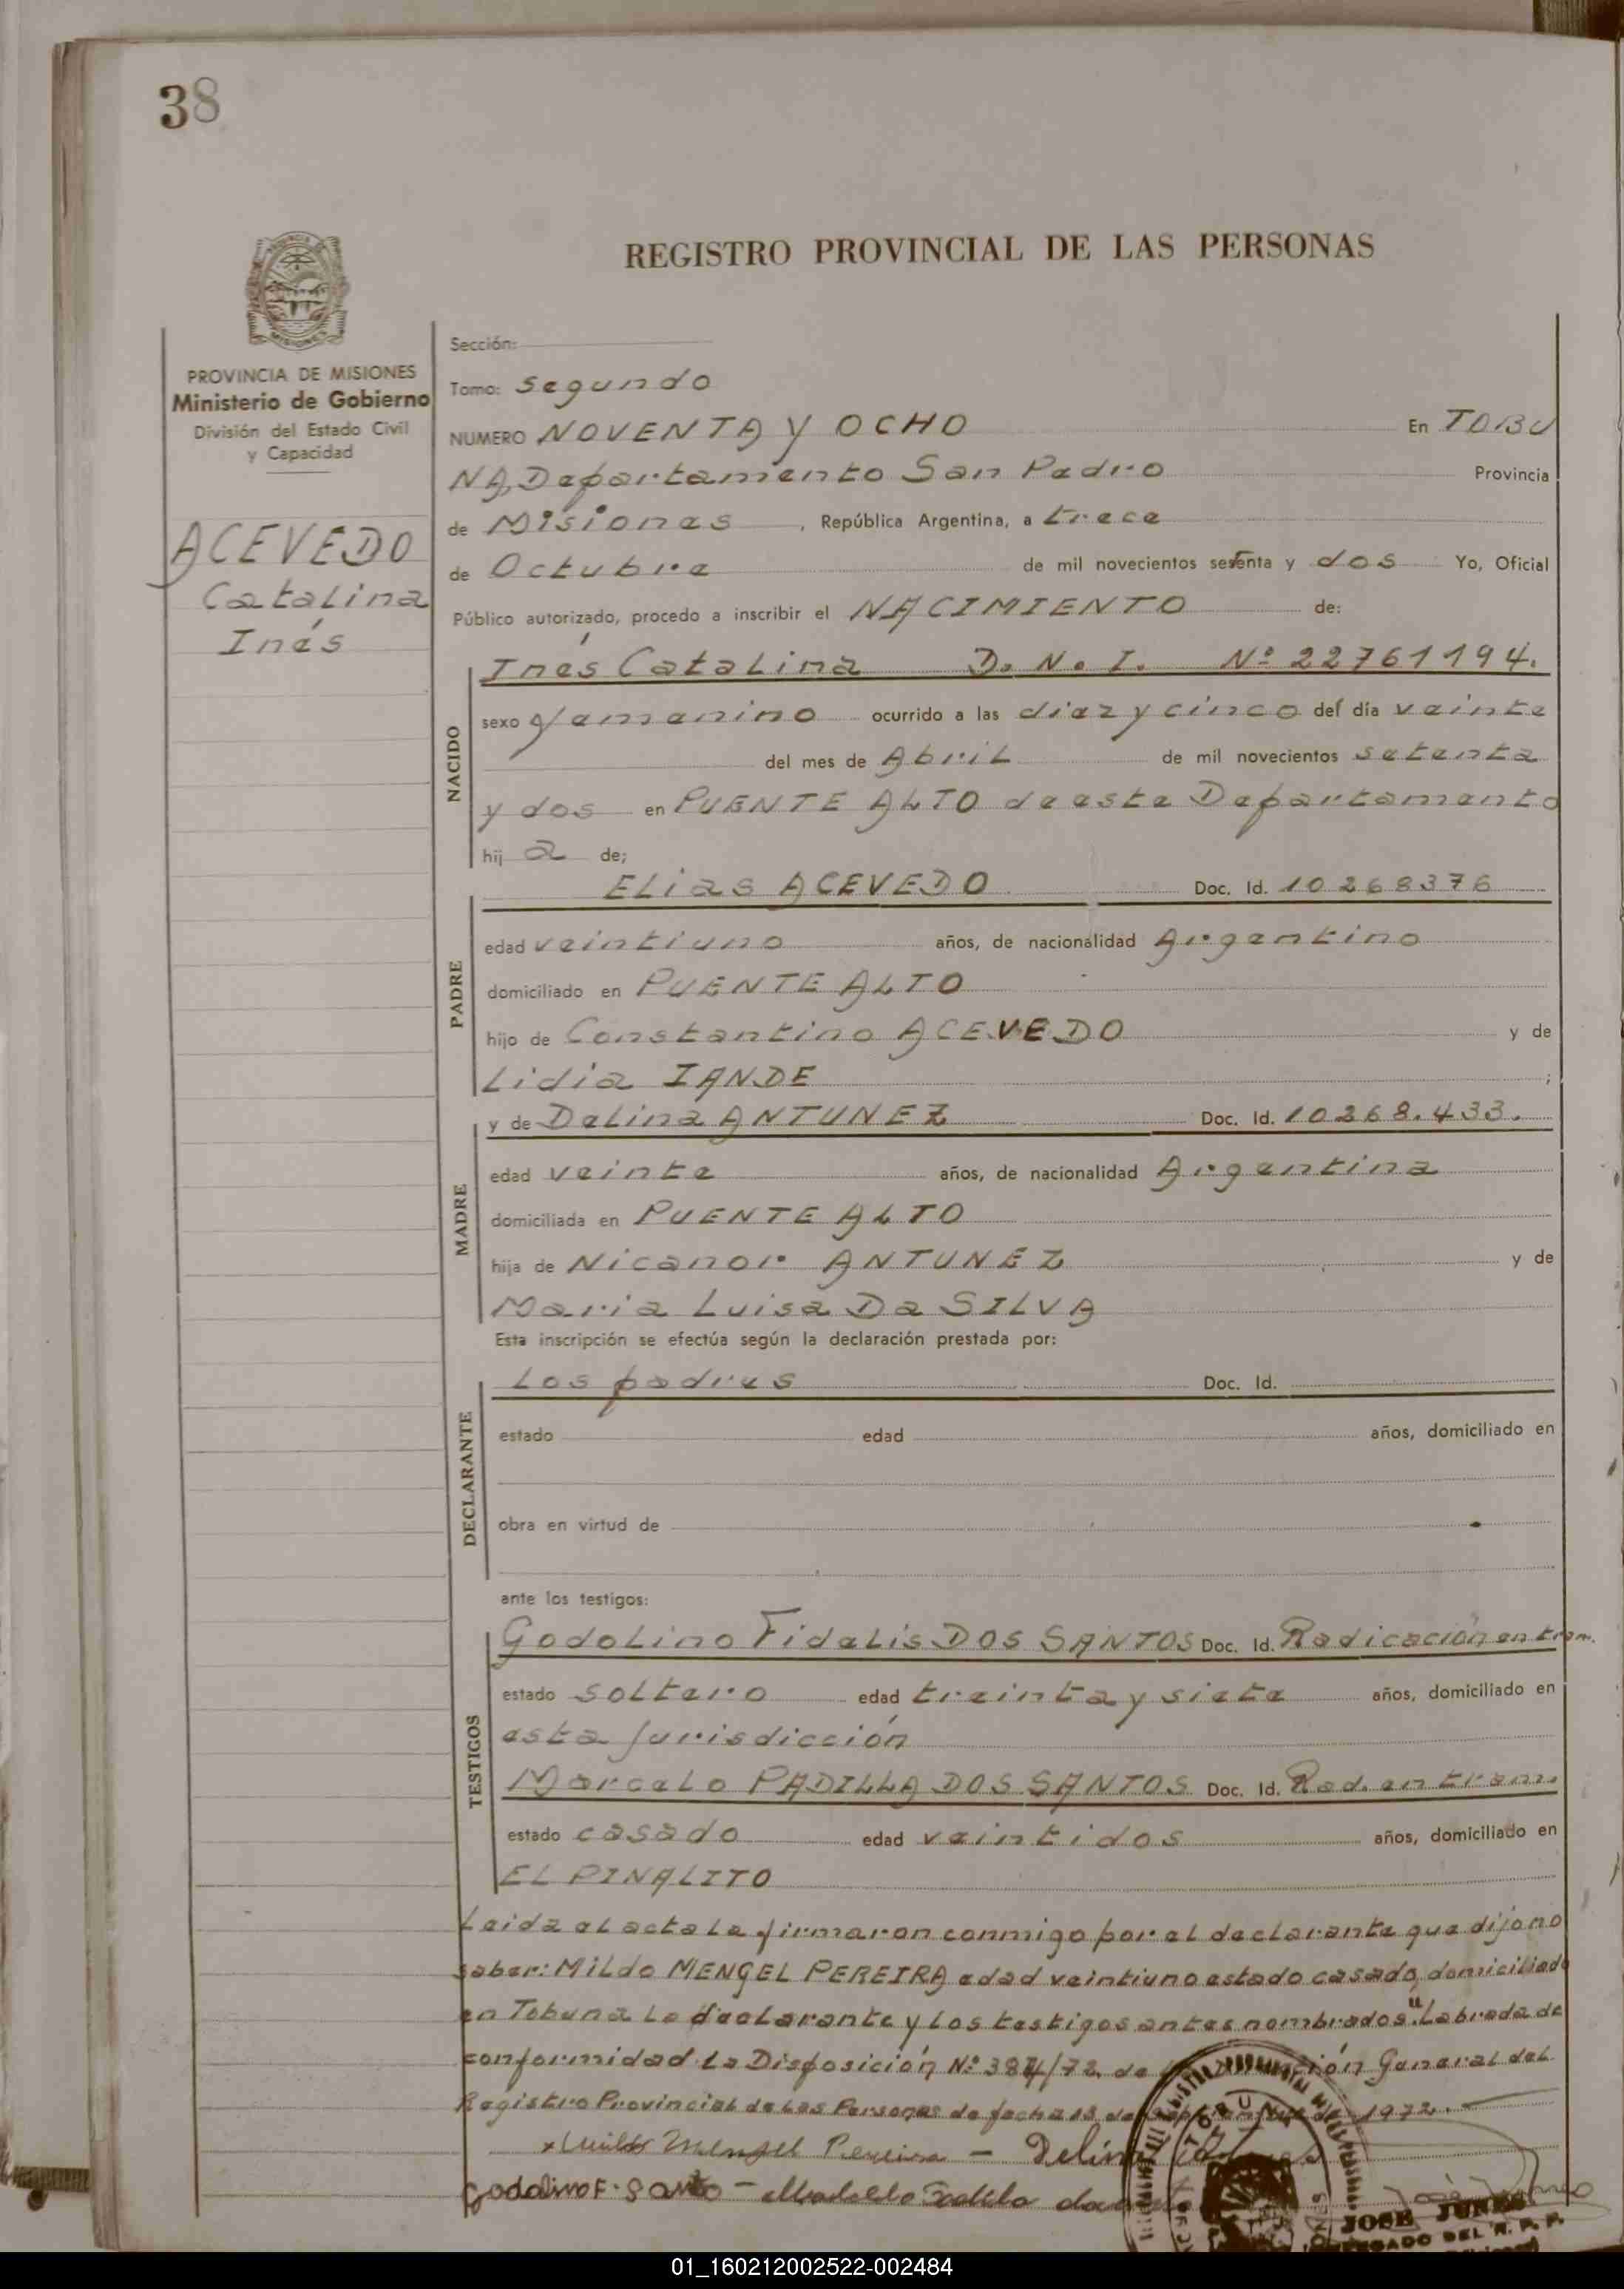 38
REGISTRO PROVINCIAL DE LAS PERSONAS
PROVINCIA DE MISIONES
Ministerio de Gobierno
División del Estado Civil
y Capacidad
ACEVEDO
Catalina
Inés
Sección:
Tomo: segundo
NUMERO NOVENTA Y OCHO En TOBU
NA, Departamento San Pedro Provincia
de Misiones, República Argentina, a trece
de Octubre de mil novecientos setenta y dos Yo, Oficial
Público autorizado, procedo a inscribir el NACIMIENTO de:
NACIDO
Inés Catalina D. N. I. Nº 22761194.
sexo femenino ocurrido a las diez y cinco del día veinte
del mes de Abril de mil novecientos setenta
y dos en PUENTE ALTO de este Departamento
hij a de;
PADRE
Elias ACEVEDO Doc. Id. 10268376
edad veintiuno años, de nacionalidad Argentino
domiciliado en PUENTE ALTO
hijo de Constantino ACEVEDO y de
Lidia IANDE ;
MADRE
y de Delina ANTUNEZ Doc. Id. 10268.433.
edad veinte años, de nacionalidad Argentina
domiciliada en PUENTE ALTO
hija de Nicanor ANTUNEZ y de
Maria Luisa Da SILVA
Esta inscripción se efectúa según la declaración prestada por:
DECLARANTE
Los padres Doc. Id.
estado edad años, domiciliado en
obra en virtud de
ante los testigos:
TESTIGOS
Godolino Fidelis DOS SANTOS Doc. Id. Radicación en tram.
estado soltero edad treinta y siete años, domiciliado en
esta jurisdicción
Marcelo PADILLA DOS SANTOS Doc. Id. Rad. en tram.
estado casado edad veintidos años, domiciliado en
EL PINALITO
Leida el acta la firmaron conmigo por el declarante que dijo no
saber: Mildo MENGEL PEREIRA edad veintiuno estado casado, domiciliado
en Tobuna la declarante y los testigos antes nombrados". Labrada de
conformidad la Disposición Nº 384/72 de ción General del
Registro Provincial de las Personas de fecha 13 de 1972.
Mengel Pereira - Delina
Godolino F. Santo - Padila
JOSE JUNES
DEL R. P. P.
01_160212002522-002484